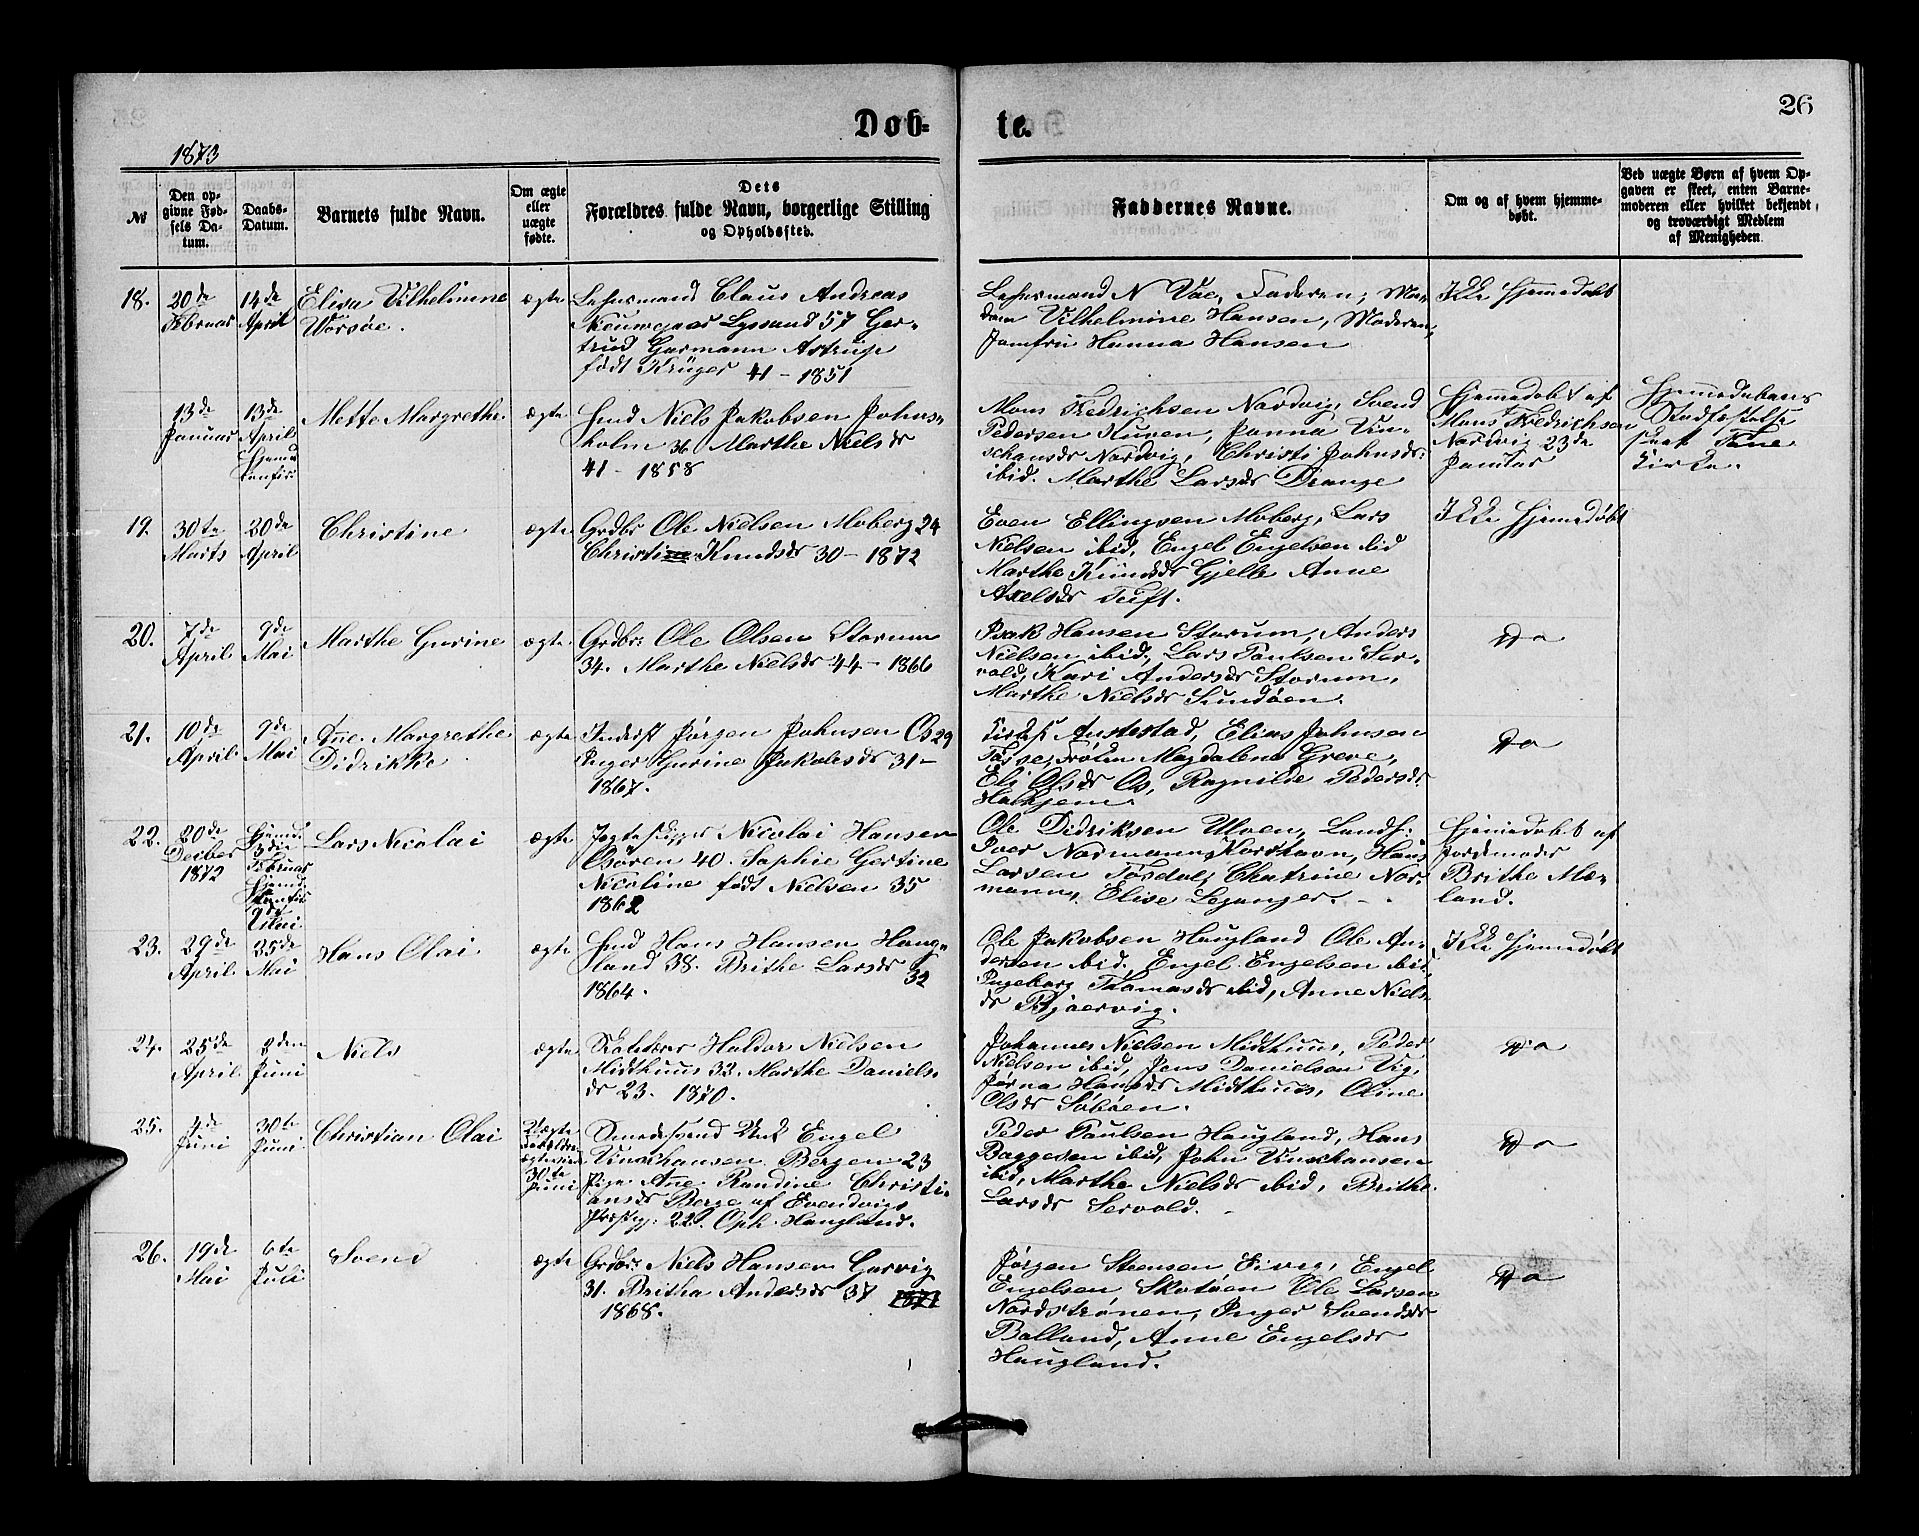 26
Døb-
te.
1873
№
Den op-
givne Fød-
sels Da-
tum.
Daabs-
Datum.
Barnets fulde Navn.
Om ægte
eller
uægte
fødte.
Dets
Forældres fulde Navn, borgerlige Stilling
og Opholdssted.
Faddernes Navne.
Om og af hvem hjemme-
døbt.
Ved uægte Børn af hvem Op-
gaven er skeet, enten Barne-
moderen eller hvilket bekjendt,
og troværdigt Medlem
af Menigheden.
18.
20de
Februar
14de
April
Elisa Vilhelmine
Worsøe.
ægte
Lehnsmand Claus Andreas
Lyssand 57 Ger-
trud Garmann Astrup
født Krüger 41 - 1851
Lehnsmand N Vae, Faderen, Ma-
dam Vilhelmine Hansen, Moderen,
Jomfru Hanna Hansen
Ikke hjemedøbt
13de
Januar
13de
April
Hjemd
Mette Margrethe
ægte
Hmd Niels Jakobsen Johns-
holm 36 Marthe Nielsdr
41 - 1858
Mons Fredrichsen Nordvig, Svend
Pedersen Kuven, Janna Vin-
schansdr Nordvig, Christi Johnsdr
ibid. Marthe Larsdr Drange
Hjemmedøbt af
Mons Fredrichsen
Nordvig 23de
Januar
Hjemmedaabens
Stadfæstelse
skeet
Kirke.
19.
30te
Marts
20de
April
Christine
ægte
Grdbr Ole Nielsen Moberg 24
Christi Knudsdr 30 - 1872
Even Ellingsen Moberg, Lars
Nielsen ibid, Engel Engelsen ibid
Marthe Knudsdr Gjelle Anne
Axelsdr Tuft.
Ikke hjemedøbt
20.
7de
April
9de
Mai
Marthe Gurine
ægte
Grdbr: Ole Olsen Storum
34. Marthe Nielsdr 44 - 1866
Isak Hansen Storum, Anders
Nielsen ibid, Lars Paulsen Ser-
vold, Kari Andersdr Storum,
Marthe Nielsdr Sundøen.
Do
21.
10de
April
9de
Mai
Ane Margrethe
Didrikke
ægte
Inderst Jørgen Johnsen Os 29
Inger Gurine Jakobsdr 31 -
1867.
Austestad, Elias Johnsen
Frøken Magdalena Greve,
Eli Olsdr Os, Ragnilde Pedersdr
Hatvjem.
Do
22.
20de
Decber
1872
Hjemd
3die
Februar
Hjemd
9de
Mai
Lars Nicolai
ægte
Jagteskipper Nicolai Hansen
Osøren 40. Sophie Gertine
Nicoline født Nielsen 35
1862
Ole Didriksen Ulven, Landh:
Iver Normann, Hans
Larsen Tøsdal, Chatrine Nor-
mann, Elise Leganger.
Hjemedøbt af
Jordemoder
Brithe Mæ-
land.
23.
29de
April
25de
Mai
Hans Olai
ægte
Hmd Hans Hansen Haug-
land 38. Brithe Larsdr 32
1864.
Ole Jakobsen Haugland Ole An-
dersen ibid. Engel Engelsen ibid,
Ingeborg Thomasdr ibid, Anne Niels-
dr Bjørnvig.
Ikke hjemedøbt
24.
25de
April
2den
Juni
Niels
ægte
Haldor Nielsen
Midthuus 32. Marthe Daniels-
dr 23. 1870.
Johannes Nielsen Midthuus, Peder
Nielsen ibid, Jens Danielsen Vig,
Jørna Hansdr Midthuus, Oline
Olsdr Søbøen.
Do
25.
4de
Juni
30te
Juni
Christian Olai
Uægte
30te
Juni
Smedesvend Unk Engel
Vinschansen Bergen 23
Pige Ane Randine Christi-
ansdr Berge af Evendvigs
Præstgj: 22. Oph. Haugland.
Peder Paulsen Haugland, Hans
Baggesen ibid, John Vinschansen
ibid, Marthe Nielsdr ibid, Brithe
Larsdr Servold.
Do
26.
19de
Mai
6te
Juli
Svend
ægte
Grdbr: Niels Hansen Gaasvig
31. Britha Andersdr 37
1868.
Jørgen Steensen Sivig, Engel
Engelsen Skotøen Ole Larsen
Nordstrønen, Inger Svendsdr
Balland, Anne Engelsdr
Haugland.
Do